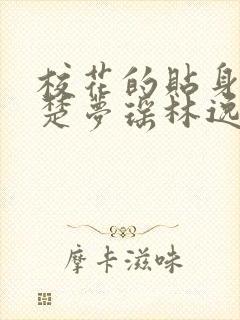 校花的貼身
楚夢瑶林逸
摩卡滋味